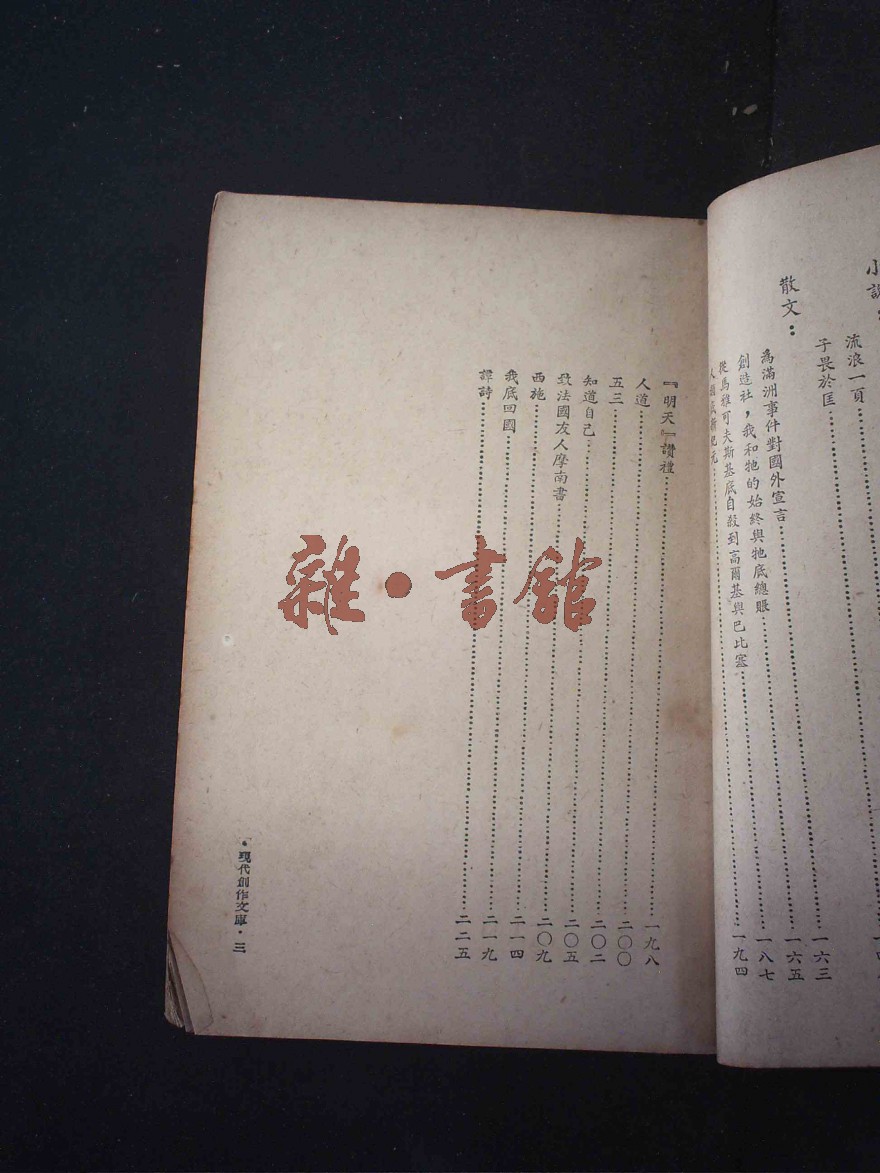 小說：
流浪一頁
子畏於匡……一六三
散文：
為滿洲事件對國外宣言……一六五
創造社，我和牠的始終與牠底總賬……一八七
從馬雅可夫斯基底自殺到高爾基與巴比塞……一九四
人類底新紀元……
『明天』讚禮……一九八
人道……二〇〇
五三……二〇二
知道自己……二〇五
致法國友人摩南書……二〇九
西施……二一四
我底回國……二一九
譯詩……二二五
・現代創作文庫・三
雜・書館